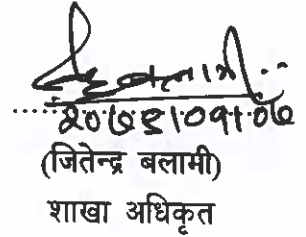 २०७९।०१।०७
(जितेन्द्र बलामी)
शाखा अधिकृत